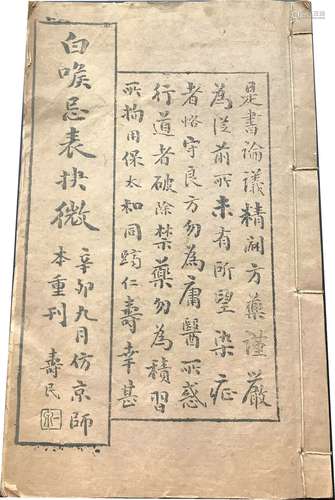 是書論議精詳方藥謹嚴
為從前所未有所望染症
者恪守良方勿為庸醫所惑
行道者破除禁藥勿為積習
所拘用保太和同躋仁壽幸甚
白喉忌表抉微
辛卯九月仿京師
本重刊
壽民